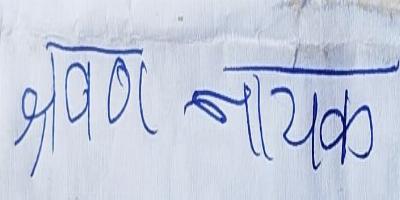 श्रवण नायक